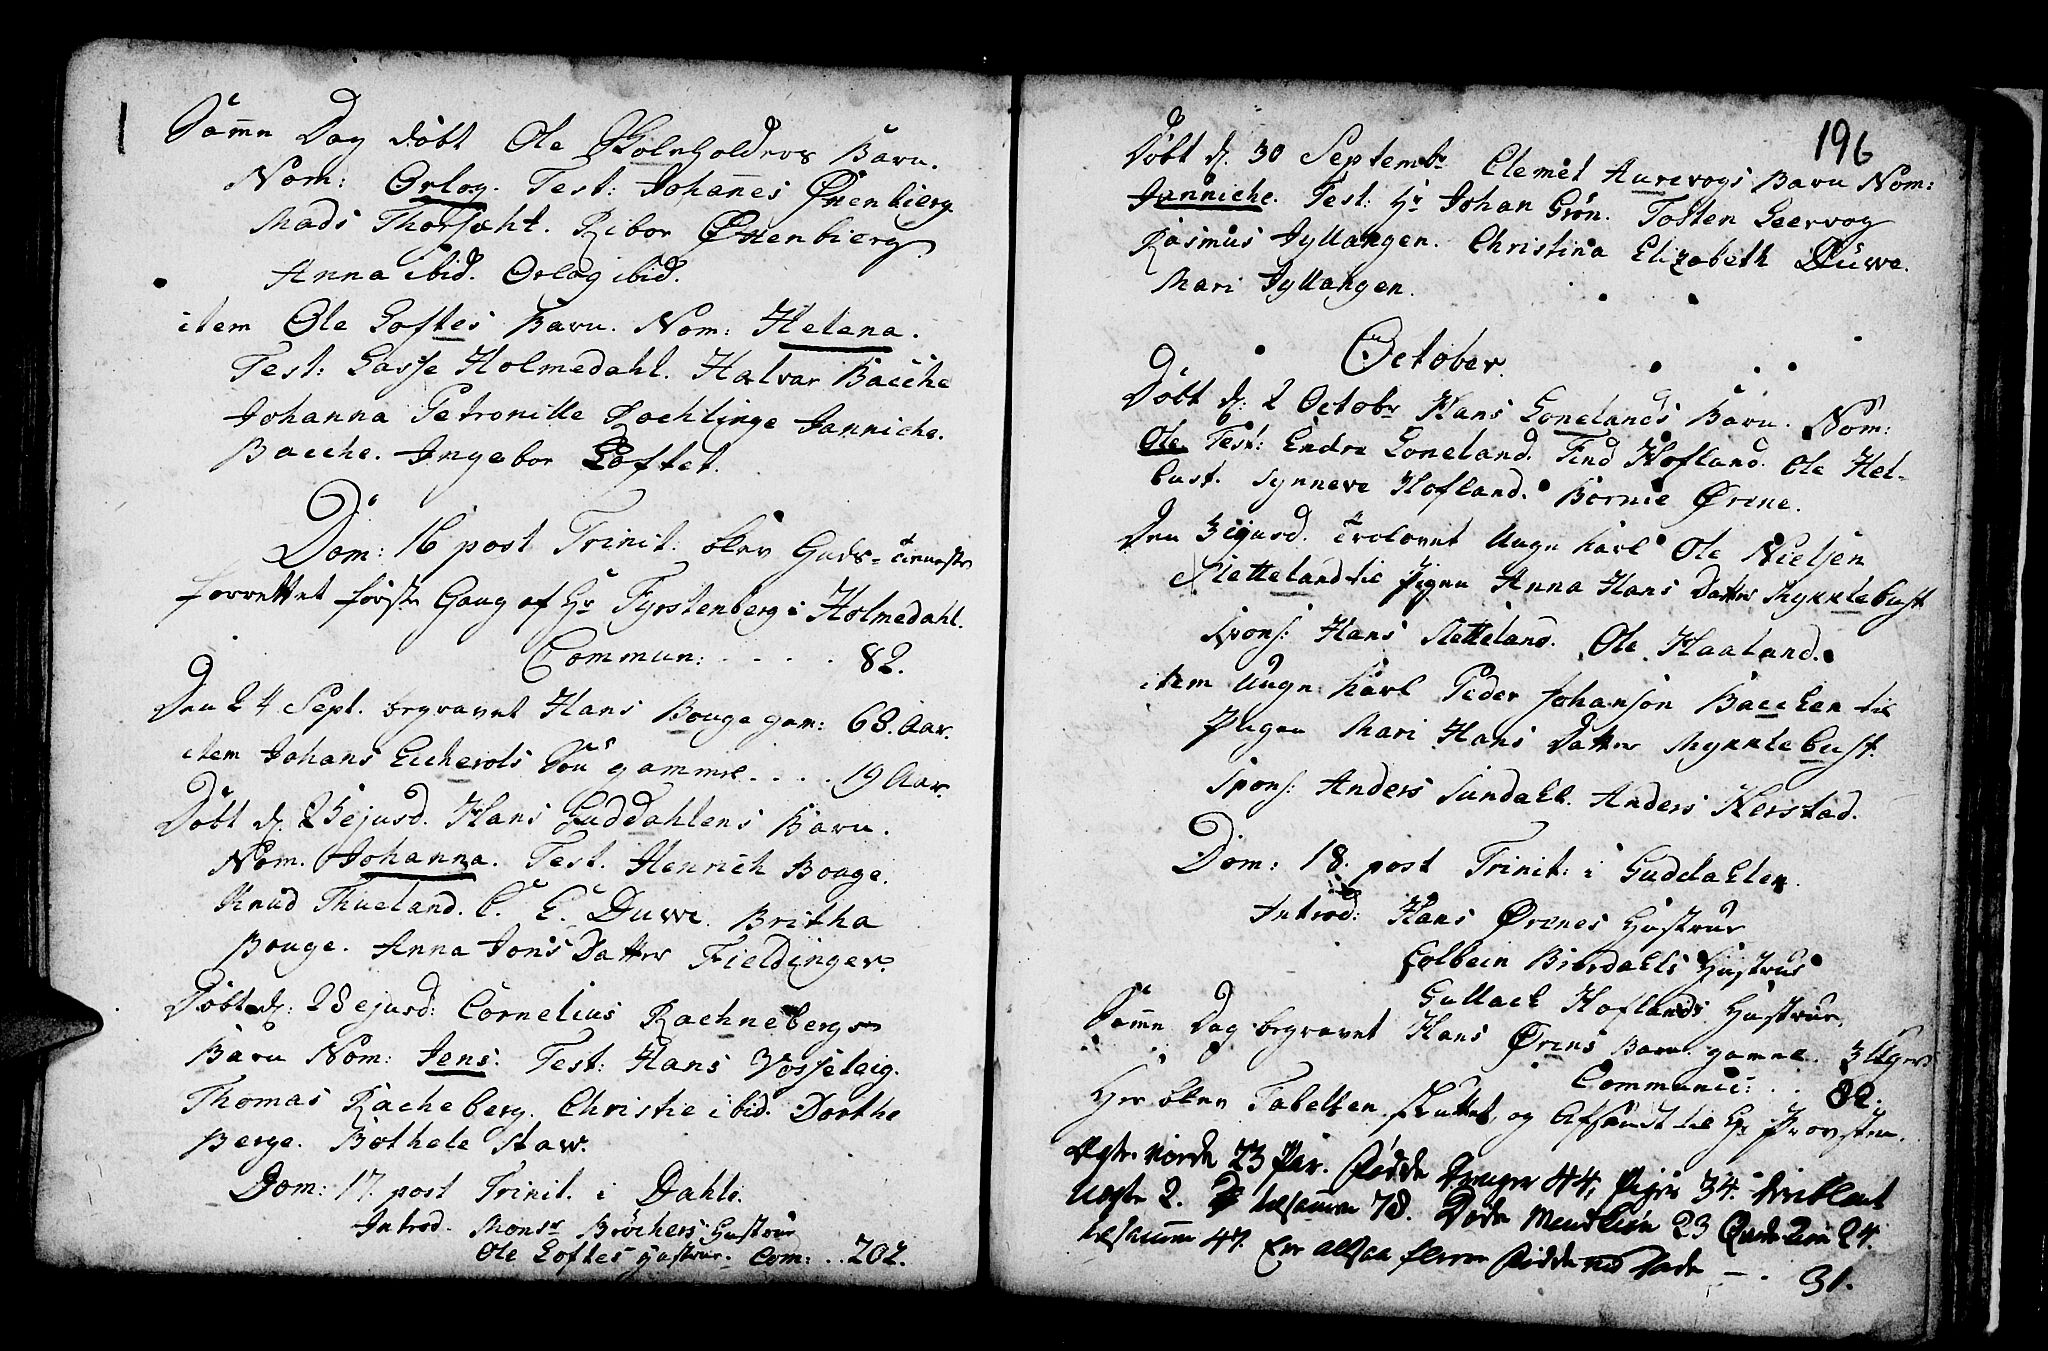 Samme Dag døbt Ole Holmholders Barn.
Nom: Orlog. Test: Johannes Øxenbierg
Mads Thorschht. Ribor Øxenbierg.
Anna ibid. Orlog ibid.
item Ole Loftes Barn. Nom: Helena.
Test: Lasse Holmedahl. Halvar Bacche
Johanna Petronille Koehlinge Janniche.
Bacche. Ingebor Loftet.
Dom: 16 post Trinit. blev Guds-tieneste
forrettet første Gang af Hr Fyrstenberg i Holmedahl.
Commun: . . . . 82.
Den 24 Sept. begravet Hans Bouge gam: 68. Aar.
item Johans Eicherols Søn gammel . . . . 19 Aar.
Døbt d. 25 ejusd. Hans Guddahlens Barn.
Nom. Johanna. Test. Henrich Bouge.
Knud Thueland. C. E. Duwe. Britha
Bouge. Anna Jons Datter Fieldinger.
Døbt d: 28 ejusd: Cornelius Rachnebergs
Barn Nom: Jens. Test: Hans Vosseteig.
Thomas Racheberg. Christie ibid. Dorthe
Berge. Bothele Staw.
Dom: 17. post Trinit. i Dahle.
Introd. Monsr Brøchers Hustrue
Ole Loftes Hustrue. Com: . . 202.
196
Døbt d. 30 Septembr Clemet Aurevogs Barn Nom:
Janniche. Test: Hr Johan Grøn. Tosten Leervog
Rasmus Jyllangen. Christina Elizabeth Duwe.
Mari Jyllangen.
October.
Døbt d. 2 Octobr Hans Lonelands Barn. Nom:
Ole Test: Endre Loneland. Find Hofland. Ole Hel-
bust. Synneve Hofland. Bornie Ørene.
Den 3 ejusd. trolovet Unge Karl Ole Nielsen
Sletteland til Pigen Anna Hans Datter Myklebust
Spons: Hans Sletteland. Ole Haaland.
item Unge Karl Peder Johanson Bacchen til
Pigen Mari Hans Datter Myklebust.
Spons: Anders Sundahl. Anders Nerstad.
Dom: 18. post Trinit: i Guddahlen.
Introd: Hans Ørenes Hustrue
Colbein Bierdahls Hustrue
Gullach Hoflands Hustrue.
Samme Dag begravet Hans Ørens Barn gamel. 3 Uger
Communic: . . 82.
Her blev Tabellen sluttet, og afsendt til Hr Provsten.
Ægte viede 23 Par. Fødde Drenger 44, Piger 34.
Uægte 2. tilsammen 78. Døde Mandkiøn 23 Qvindekiøn 24.
tilsamm 47. Er altsaa fleere Fødde end Døde - . 31.